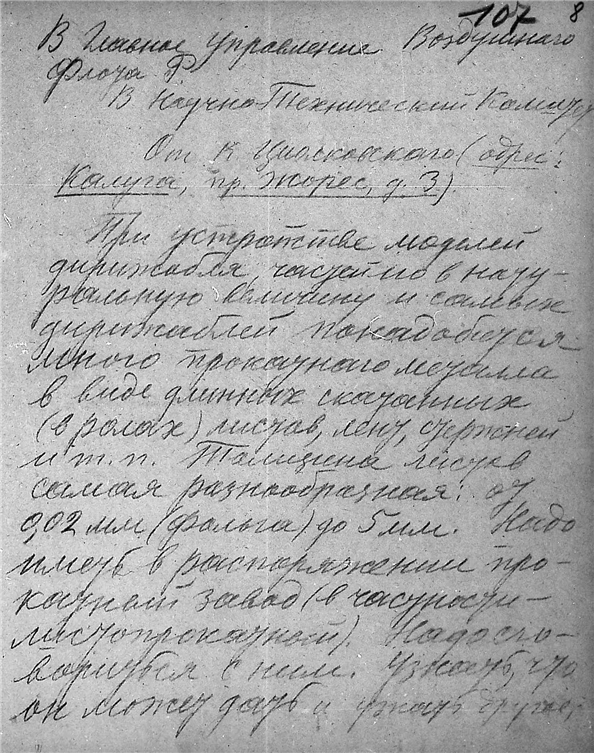 107 8
В Главное Управление Воздушнаго
Флота
В Научно-Технический Комитет
От К Циолковскаго (адрес:
Калуга, пр. Жорес, д. 3).
При устройстве моделей
дирижабля, частей его в нату-
ральную величину и самых
дирижаблей понадобится
много прокатнаго металла
в виде длинных скатанных
(в ролах) листов, лент, стержней
и т. п. Толщина листов
самая разнообразная: от
0,02 мм (фольга) до 5 мм. Надо
иметь в распоряжении про-
катный завод (в частности-
листопрокатный). Надо сго-
вориться с ним. Узнать, что
он может дать и узнать другое,